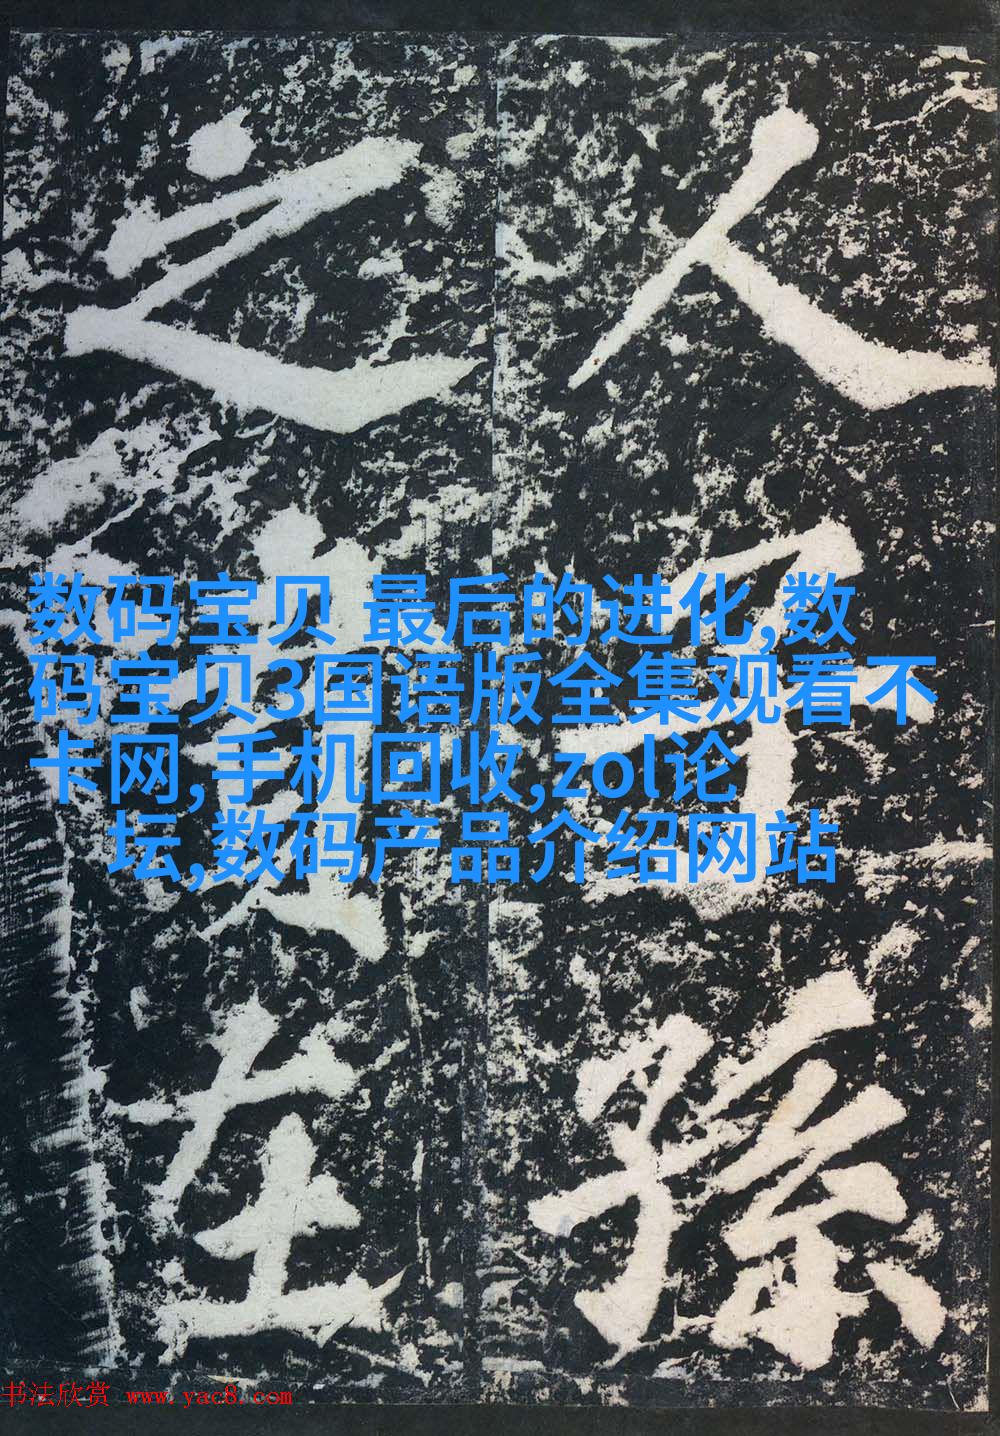 人
孫
之
在
数码宝贝 最后的进化,数
码宝贝3国语版全集观看不
卡网,手机回收,zol论
坛,数码产品介绍网站
书法欣赏 www.yac8.com